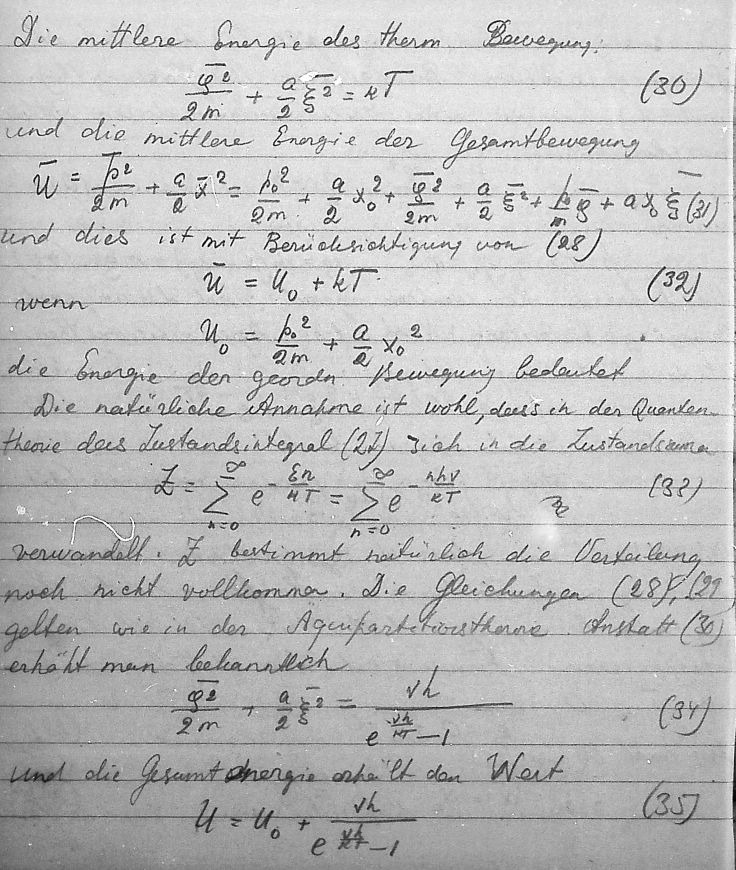 Die mittlere Energie des therm Bewegung:
φ̄²/2m + a/2 ξ̄² = kT (30)
und die mittlere Energie der Gesamtbewegung
Ū = p̄²/2m + a/2 x̄² = p₀²/2m + a/2 x₀² + φ̄²/2m + a/2 ξ̄² + p₀/m φ̄ + a x₀ ξ̄ (31)
und dies ist mit Berücksichtigung von (28)
Ū = U₀ + kT (32)
wenn
U₀ = p₀²/2m + a/2 x₀²
die Energie der geordn Bewegung bedeutet
Die natürliche Annahme ist wohl, dass in der Quanten-
theorie das Zustandsintegral (27) sich in die Zustandsuma
Z = ∑_{n=0}^{∞} e^{-εn/kT} = ∑_{n=0}^{∞} e^{-nhν/kT} (33)
verwandelt. Z bestimmt natürlich die Verteilung
noch nicht vollkommen. Die Gleichungen (28), (29
gelten wie in der Äquipartitionstheorie Anstatt (30)
erhäht man bekanntlich
φ̄²/2m + a/2 ξ̄² = νh/(e^{νh/kT} - 1) (34)
und die Gesamtenergie erhält den Wert
U = U₀ + νh/(e^{νh/kT} - 1) (35)